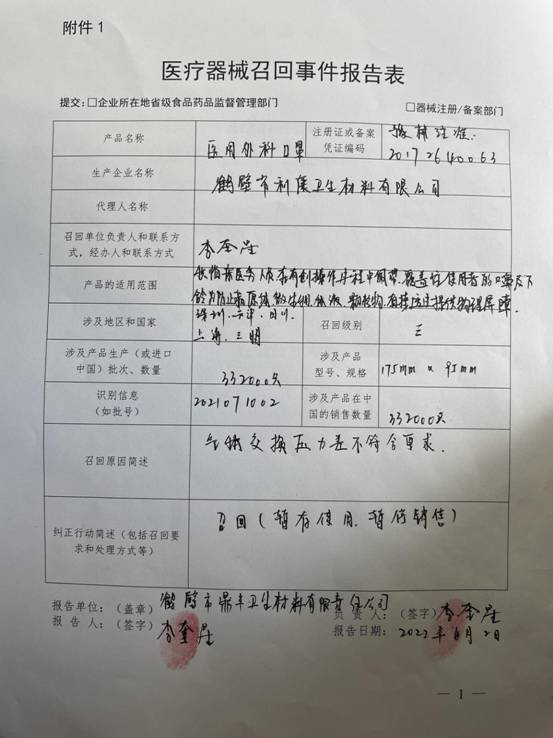 附件 1
医疗器械召回事件报告表
提交：□企业所在地省级食品药品监督管理部门
□器械注册/备案部门
产品名称
医用外科口罩
注册证或备案
凭证编码
豫械注准
20172640063
生产企业名称
鹤壁市利康卫生材料有限公司
代理人名称
召回单位负责人和联系方
式，经办人和联系方式
李奎星
产品的适用范围
供临床医务人员在有创操作过程中佩带，覆盖住使用者的口鼻及下
颌为防止病原体微生物、体液、颗粒物
涉及地区和国家
深圳、天津、四川、
上海、三明
召回级别
三
涉及产品生产（或进口
中国）批次、数量
332000只
涉及产品
型号、规格
175mm x 95mm
识别信息
（如批号）
2021071002
涉及产品在中
国的销售数量
332000只
召回原因简述
气体交换压力差不符合要求.
纠正行动简述（包括召回要
求和处理方式等）
召回（暂存使用、暂停销售）
报告单位：（盖章）
鹤壁市鼎丰卫生材料有限责任公司
负责人：（签字）李奎星
报告人：（签字）李奎星
报告日期：2022年 月2日
— 1 —